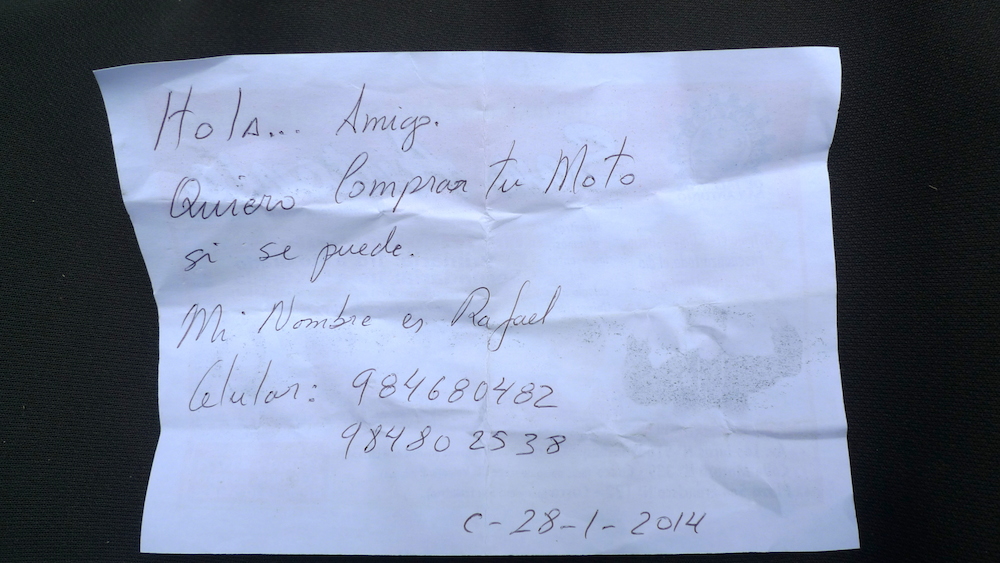 Hola... Amigo.
Quiero Comprar tu Moto
si se puede.
Mi Nombre es Rafael
Celular: 984680482
984802538
C-28-1-2014